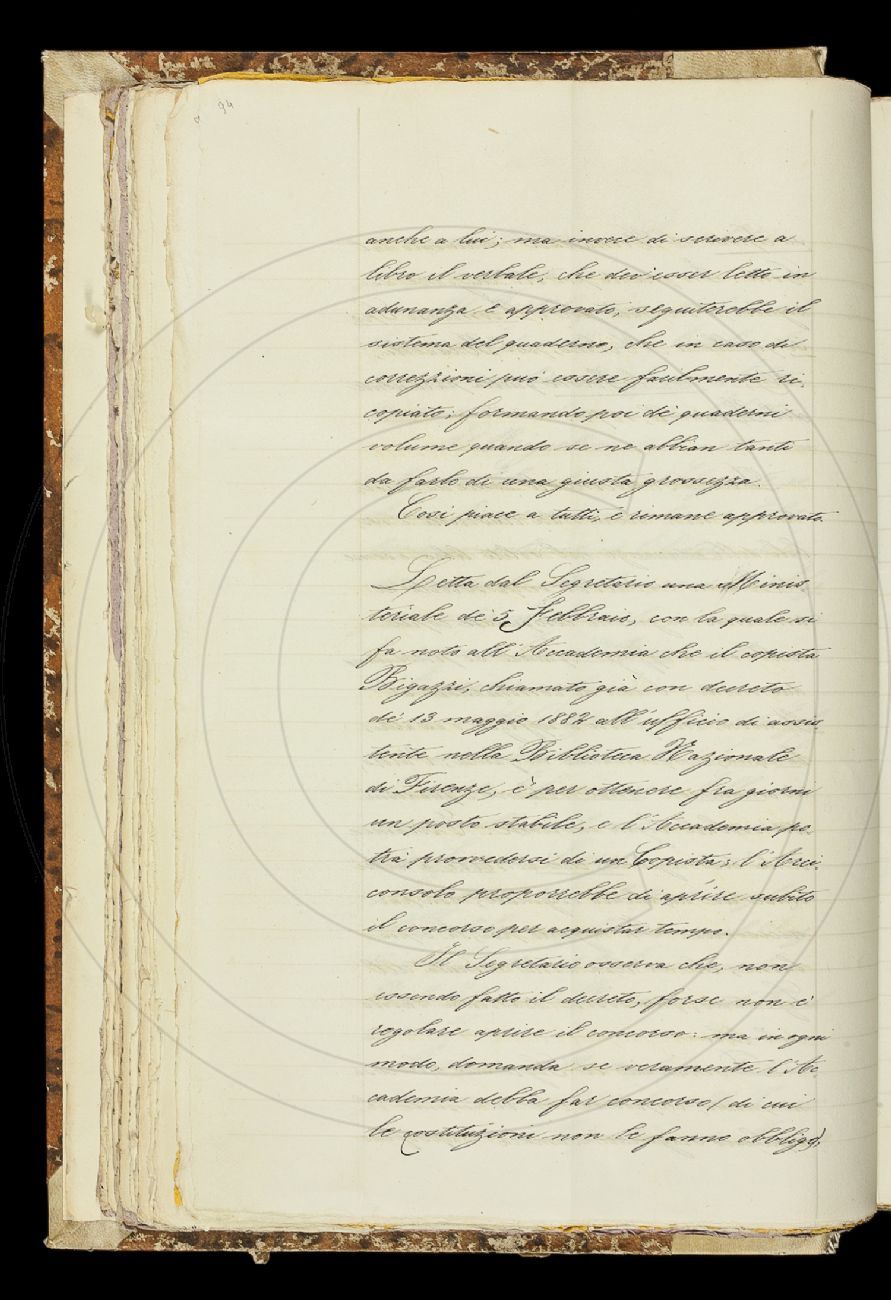 94
anche a lui; ma invece di scrivere a
libro il verbale, che dev'esser letto in
adunanza e approvato, seguiterebbe il
sistema del quaderno, che in caso di
correzzioni può essere facilmente ri-
copiato; formando poi de' quaderni
volume quando se ne abbian tanti
da farlo di una giusta grossezza.
Così piace a tutti, e rimane approvato.
Letta dal Segretario una Minis-
teriale de' 5 Febbraio, con la quale si
fa noto all'Accademia che il copista
Bigazzi, chiamato già con decreto
de' 13 maggio 1882 all'ufficio di assis-
tente nella Biblioteca Nazionale
di Firenze, è per ottenere fra giorni
un posto stabile, e l'Accademia po-
trà provvedersi di un Copista; l'Arci-
consolo proporrebbe di aprire subito
il concorso per acquistar tempo.
Il Segretario osserva che, non
essendo fatto il decreto, forse non è
regolare aprire il concorso: ma in ogni
modo, domanda se veramente l'Ac-
cademia debba far concorso (di cui
le costituzioni non le fanno obbligo),